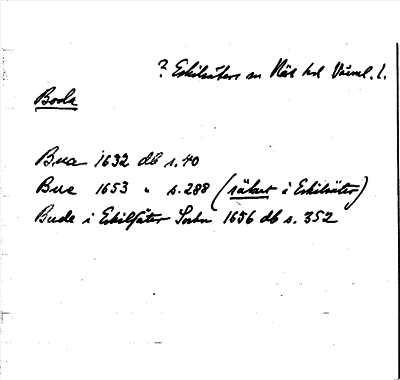 ? Eskilsäters sn Näs hd Värml. l.
Boda
Bua 1632 db s. 40
Bua 1653 " s. 288 (säkert i Eskilsäter)
Buda i Eskilsäter Sochn 1656 db s. 352